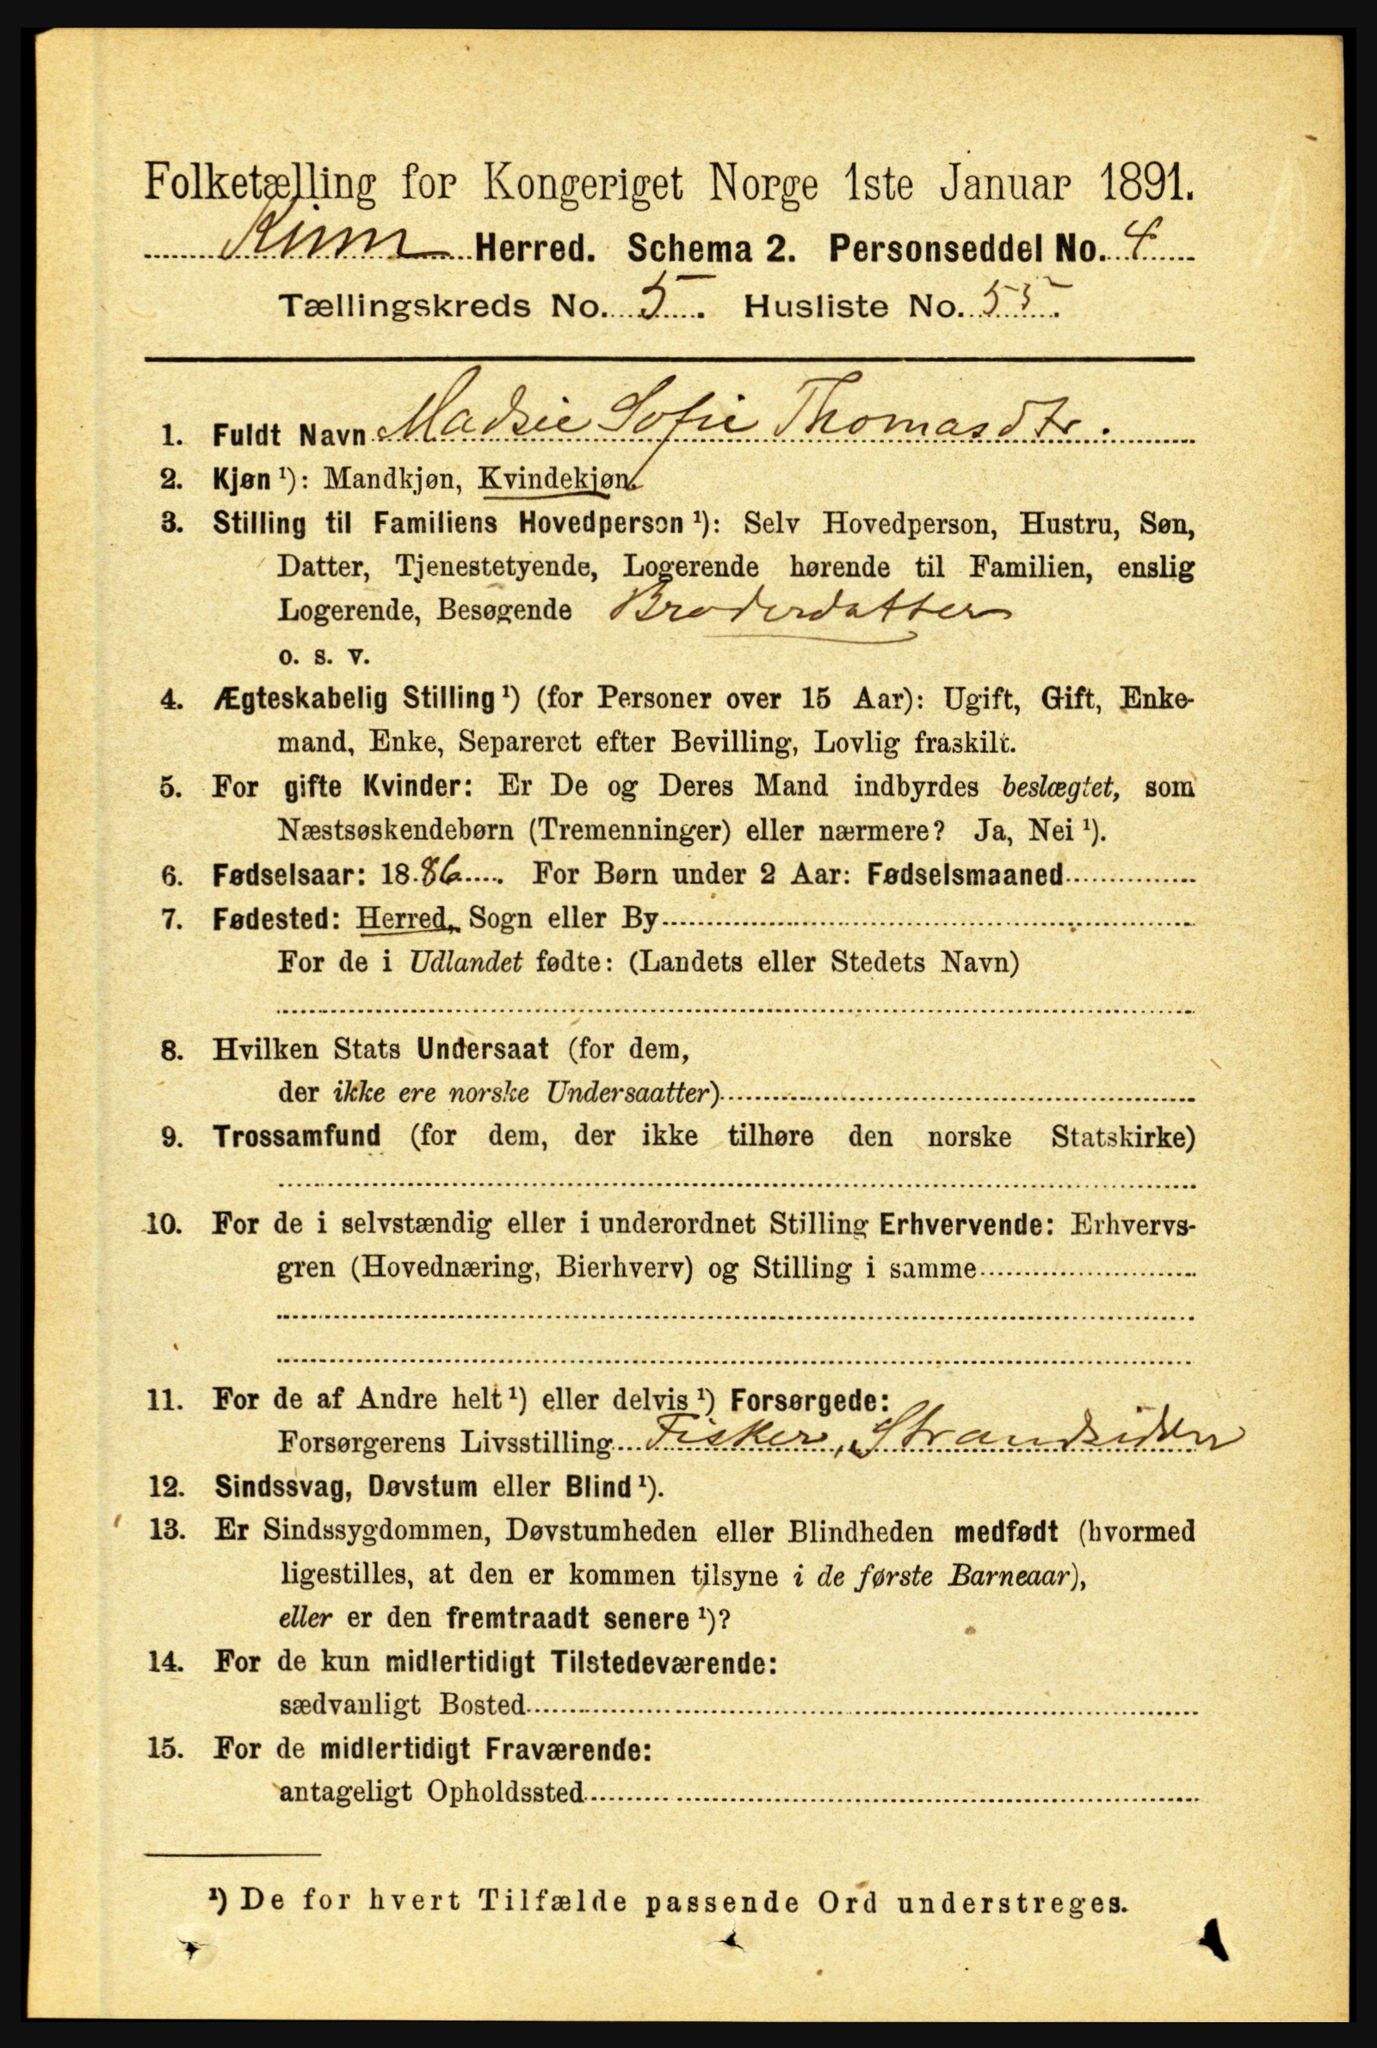 Folketælling for Kongeriget Norge 1ste Januar 1891.
Kinn Herred. Schema 2. Personseddel No. 4
Tællingskreds No. 5. Husliste No. 55.
1. Fuldt Navn Madsie Sofie Thomasdtr.
2. Kjøn ¹): Mandkjøn, Kvindekjøn.
3. Stilling til Familiens Hovedperson ¹): Selv Hovedperson, Hustru, Søn,
Datter, Tjenestetyende, Logerende hørende til Familien, enslig
Logerende, Besøgende Broderdatter
o. s. v.
4. Ægteskabelig Stilling ¹) (for Personer over 15 Aar): Ugift, Gift, Enke-
mand, Enke, Separeret efter Bevilling, Lovlig fraskilt.
5. For gifte Kvinder: Er De og Deres Mand indbyrdes beslægtet, som
Næstsøskendebørn (Tremenninger) eller nærmere? Ja, Nei ¹).
6. Fødselsaar: 1886. For Børn under 2 Aar: Fødselsmaaned
7. Fødested: Herred, Sogn eller By
For de i Udlandet fødte: (Landets eller Stedets Navn)
8. Hvilken Stats Undersaat (for dem,
der ikke ere norske Undersaatter)
9. Trossamfund (for dem, der ikke tilhøre den norske Statskirke)
10. For de i selvstændig eller i underordnet Stilling Erhvervende: Erhvervs-
gren (Hovednæring, Bierhverv) og Stilling i samme
11. For de af Andre helt ¹) eller delvis ¹) Forsørgede:
Forsørgerens Livsstilling Fisker, Strandsidder
12. Sindssvag, Døvstum eller Blind ¹).
13. Er Sindssygdommen, Døvstumheden eller Blindheden medfødt (hvormed
ligestilles, at den er kommen tilsyne i de første Barneaar),
eller er den fremtraadt senere ¹)?
14. For de kun midlertidigt Tilstedeværende:
sædvanligt Bosted
15. For de midlertidigt Fraværende:
antageligt Opholdssted
¹) De for hvert Tilfælde passende Ord understreges.